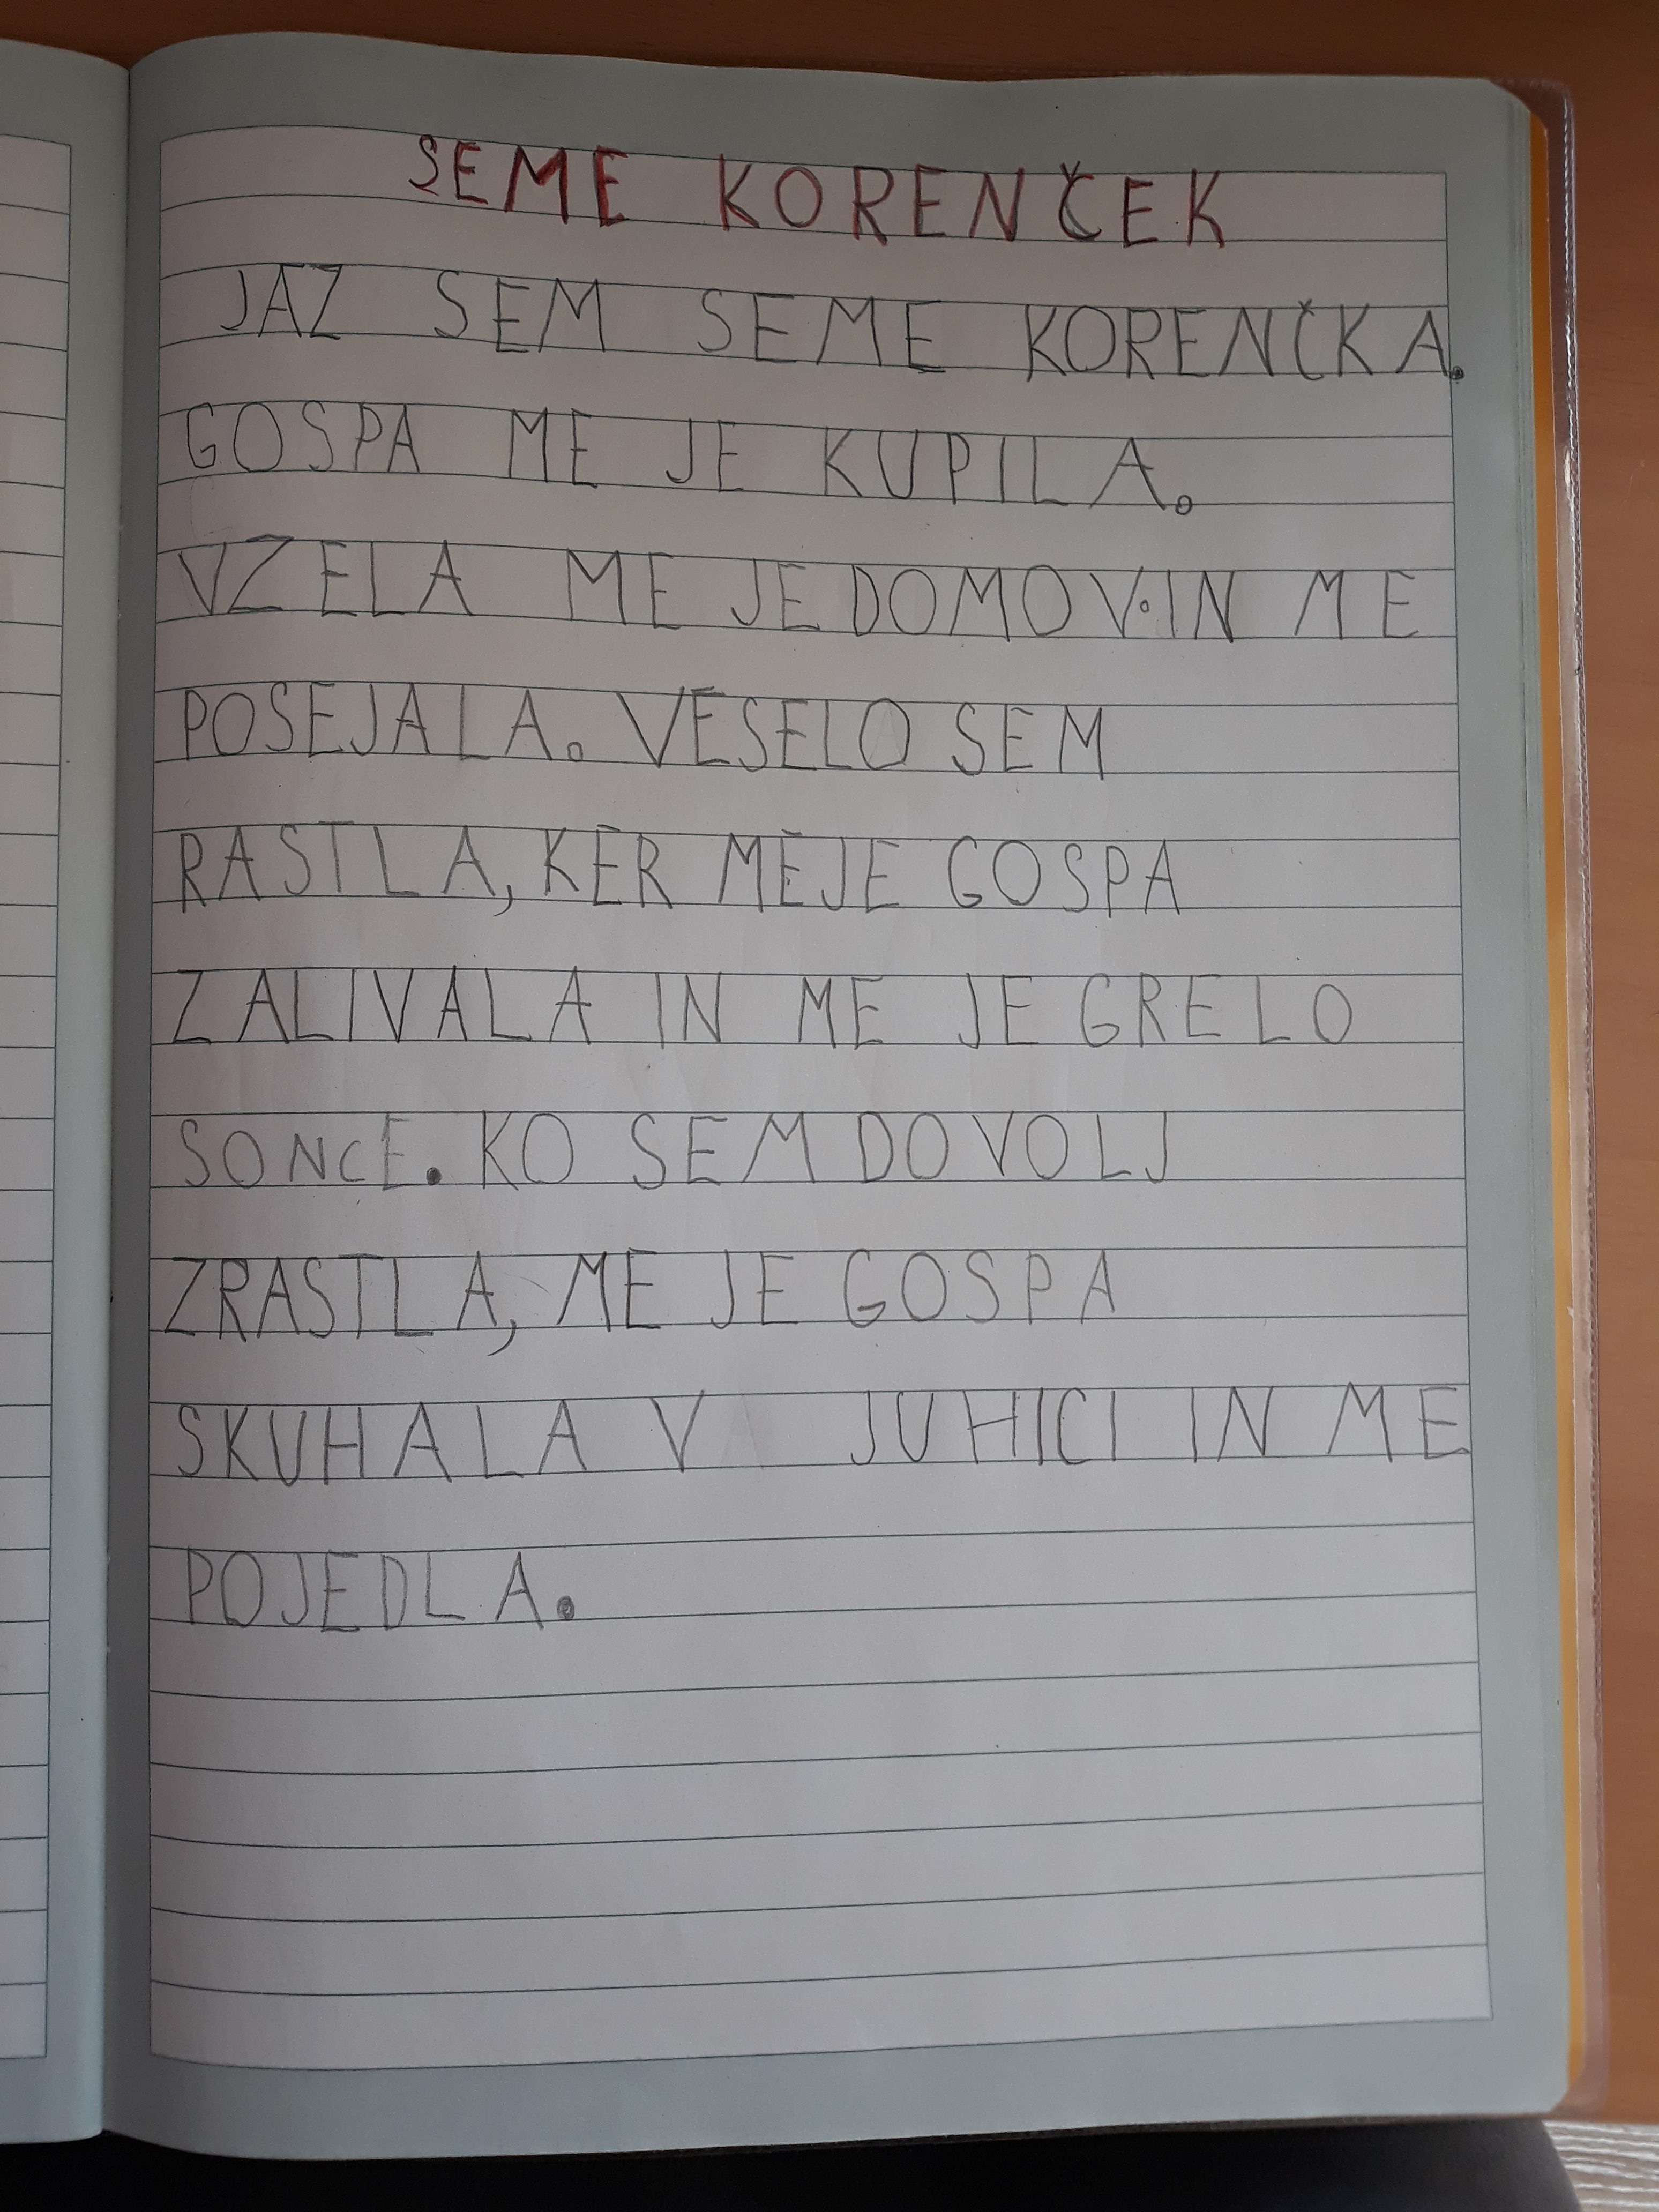 SEME KORENČEK
JAZ SEM SEME KORENČKA.
GOSPA ME JE KUPILA.
VZELA ME JE DOMOV.IN ME
POSEJALA. VESELO SEM
RASTLA, KER ME JE GOSPA
ZALIVALA IN ME JE GRELO
SONCE. KO SEM DOVOLJ
ZRASTLA, ME JE GOSPA
SKUHALA V JUHICI IN ME
POJEDLA.